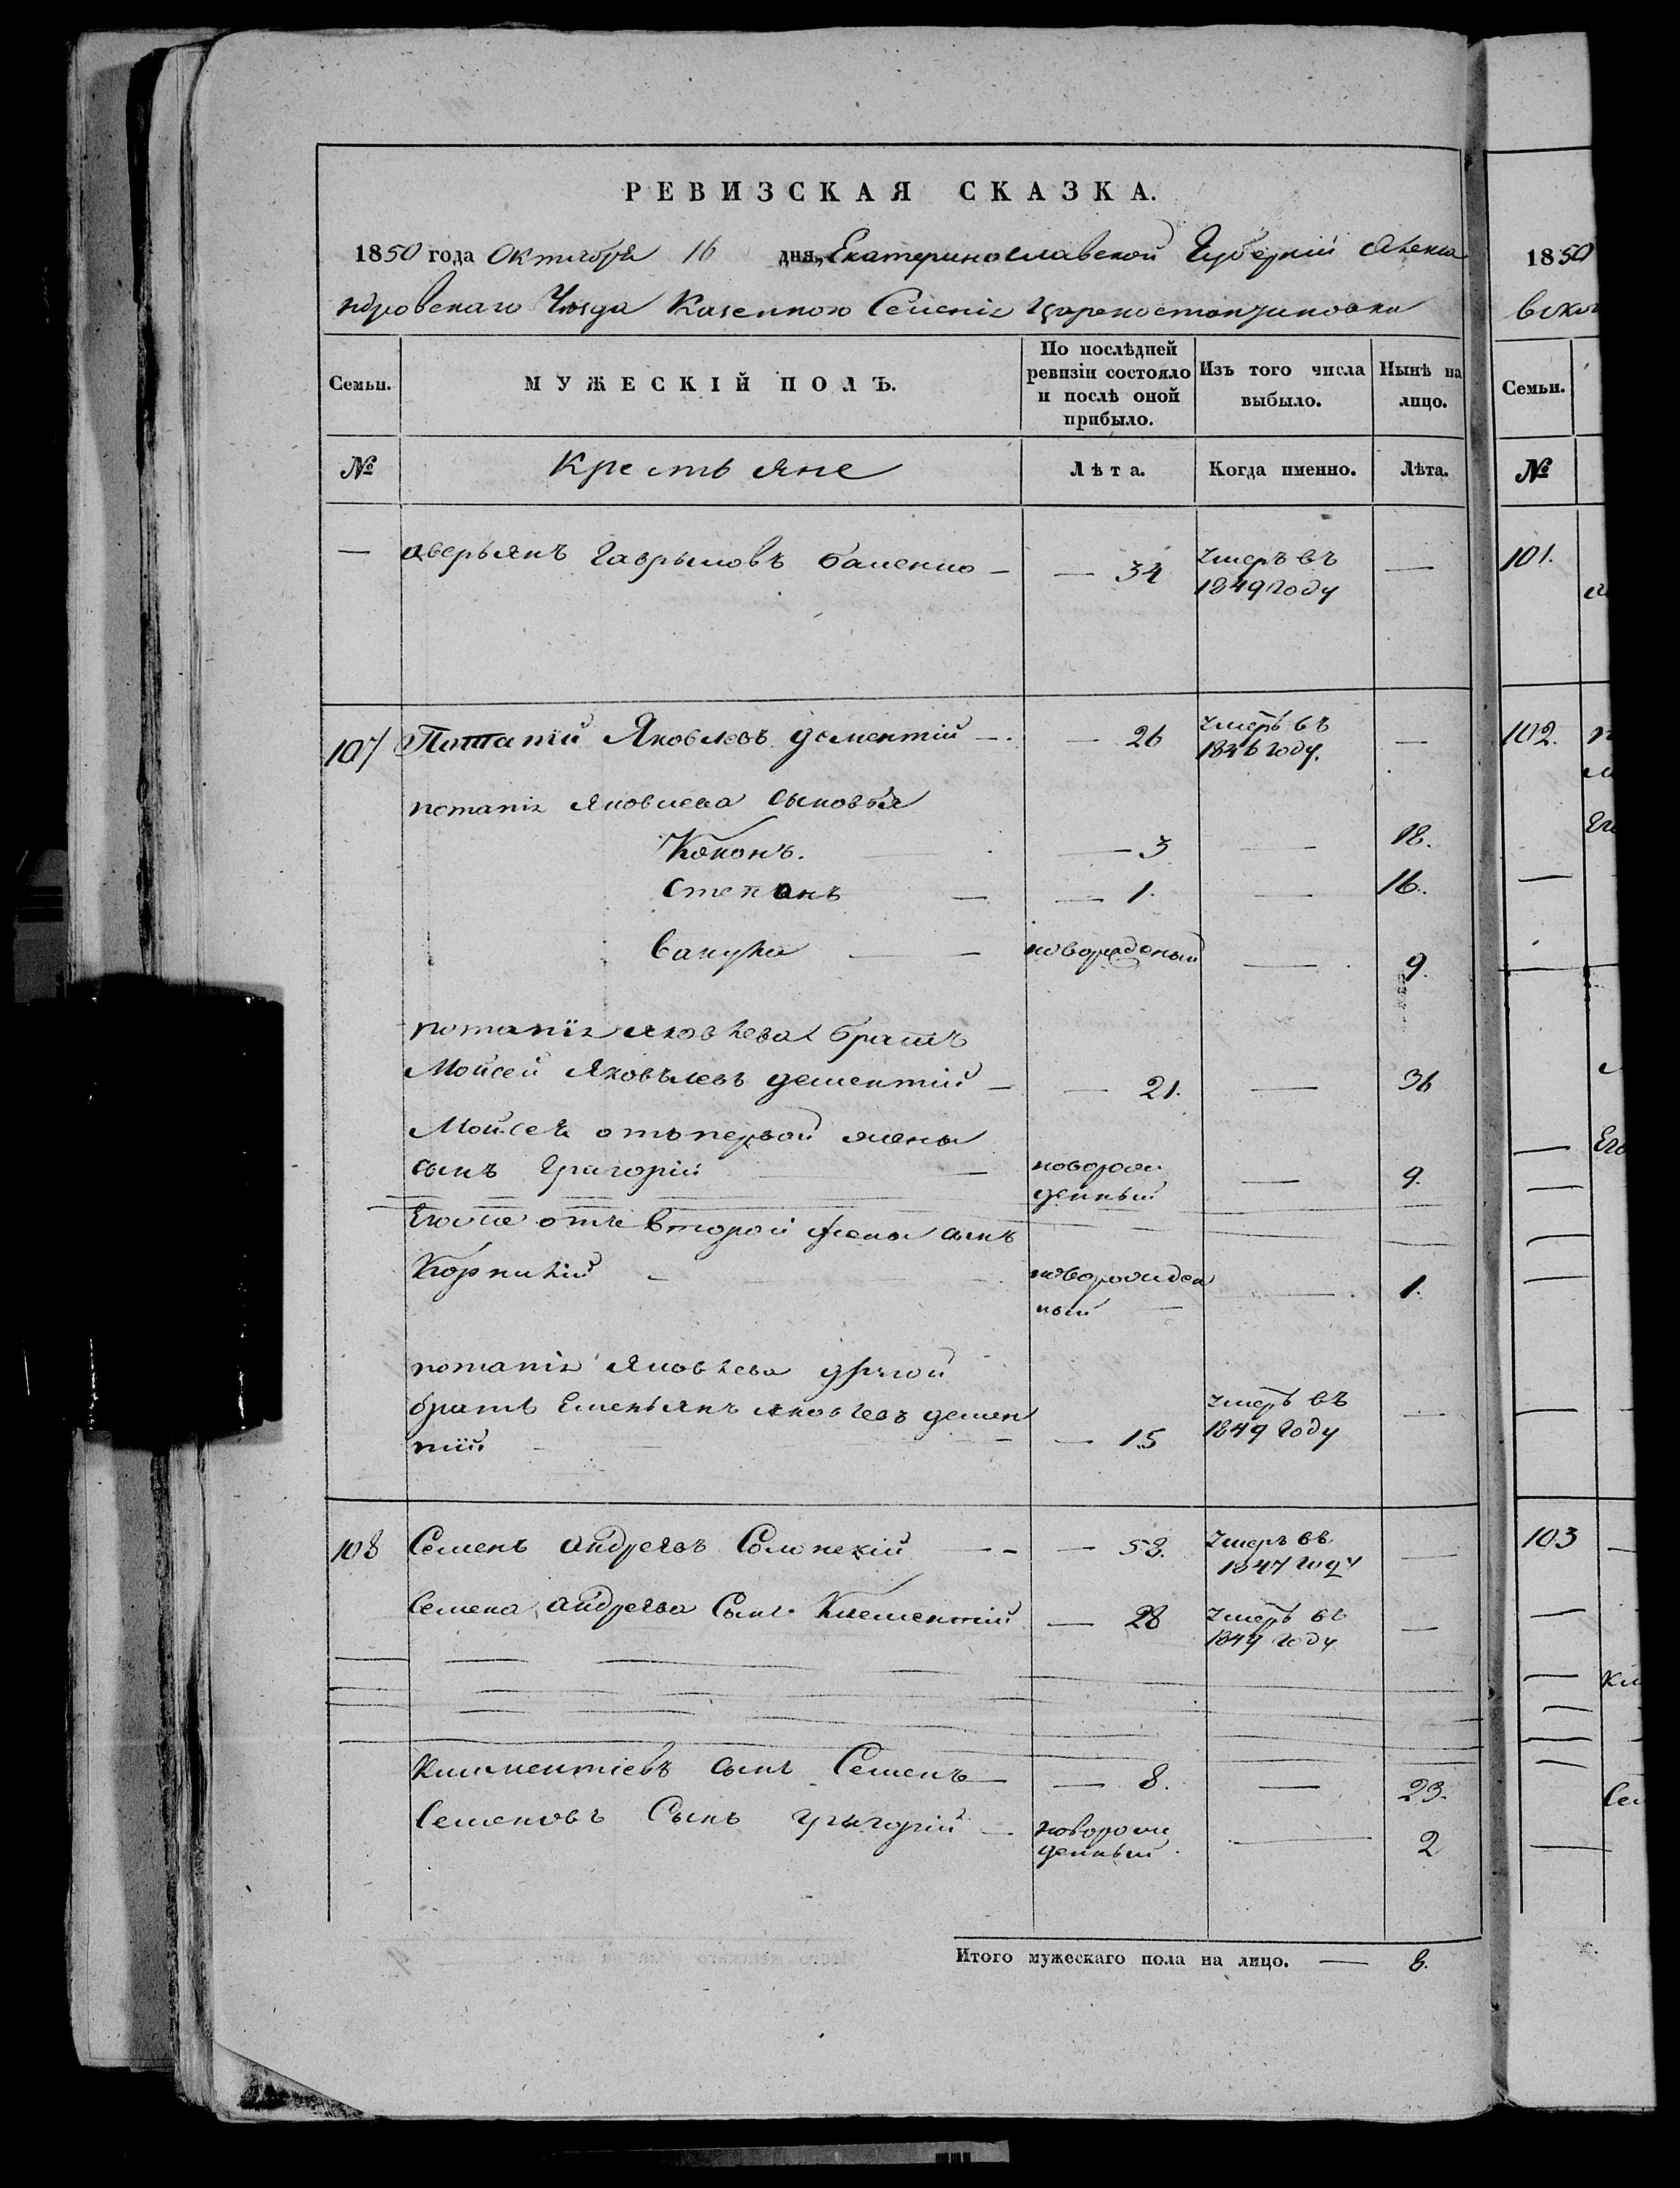 РЕВИЗСКАЯ СКАЗКА.
1850 года Октября 16 дня, Екатеринославской Губерніи Алекса
ндровскаго Уезда Казенного Селенія Царекостантиновки
Семьи. МУЖЕСКІЙ ПОЛЪ. По послѣдней ревизіи состояло и послѣ оной прибыло. Изъ того числа выбыло. Нынѣ на лицо.
№ Крестьяне Лѣта. Когда именно. Лѣта.
— аверьянъ гаврыловъ — 34 умеръ въ —
1849 году
107 Потапій Яковлевъ дементій — 26 умеръ въ —
1836 году.
потапія яковлева сыновья
Кононъ. — 3 — 18.
степанъ — 1. — 16.
вакула — новораденый — 9.
потапія яковлева братъ
Мойсей Яковълевъ дементій — 21. — 36
Мойсея отъ первой жены
сынъ Григорій — новорож — 9.
денный
Его же отъ второй жены сынъ
Корнилій — новорожден — 1.
ный —
потапія Яковлева другой
братъ Емельянъ яковлевъ демен умеръ въ —
тій — 15 1849 году
108 Семенъ андреевъ — 53. умеръ въ —
1847 году
Семена андреева Сынъ Клементій — 28 умеръ въ —
1849 году
Климентіевъ сынъ Семенъ — 8. — 23.
Семеновъ Сынъ григорій — новорож — 2
денный.
Итого мужескаго пола на лицо. — 8.
1850
Семьи.
№
101.
102.
103